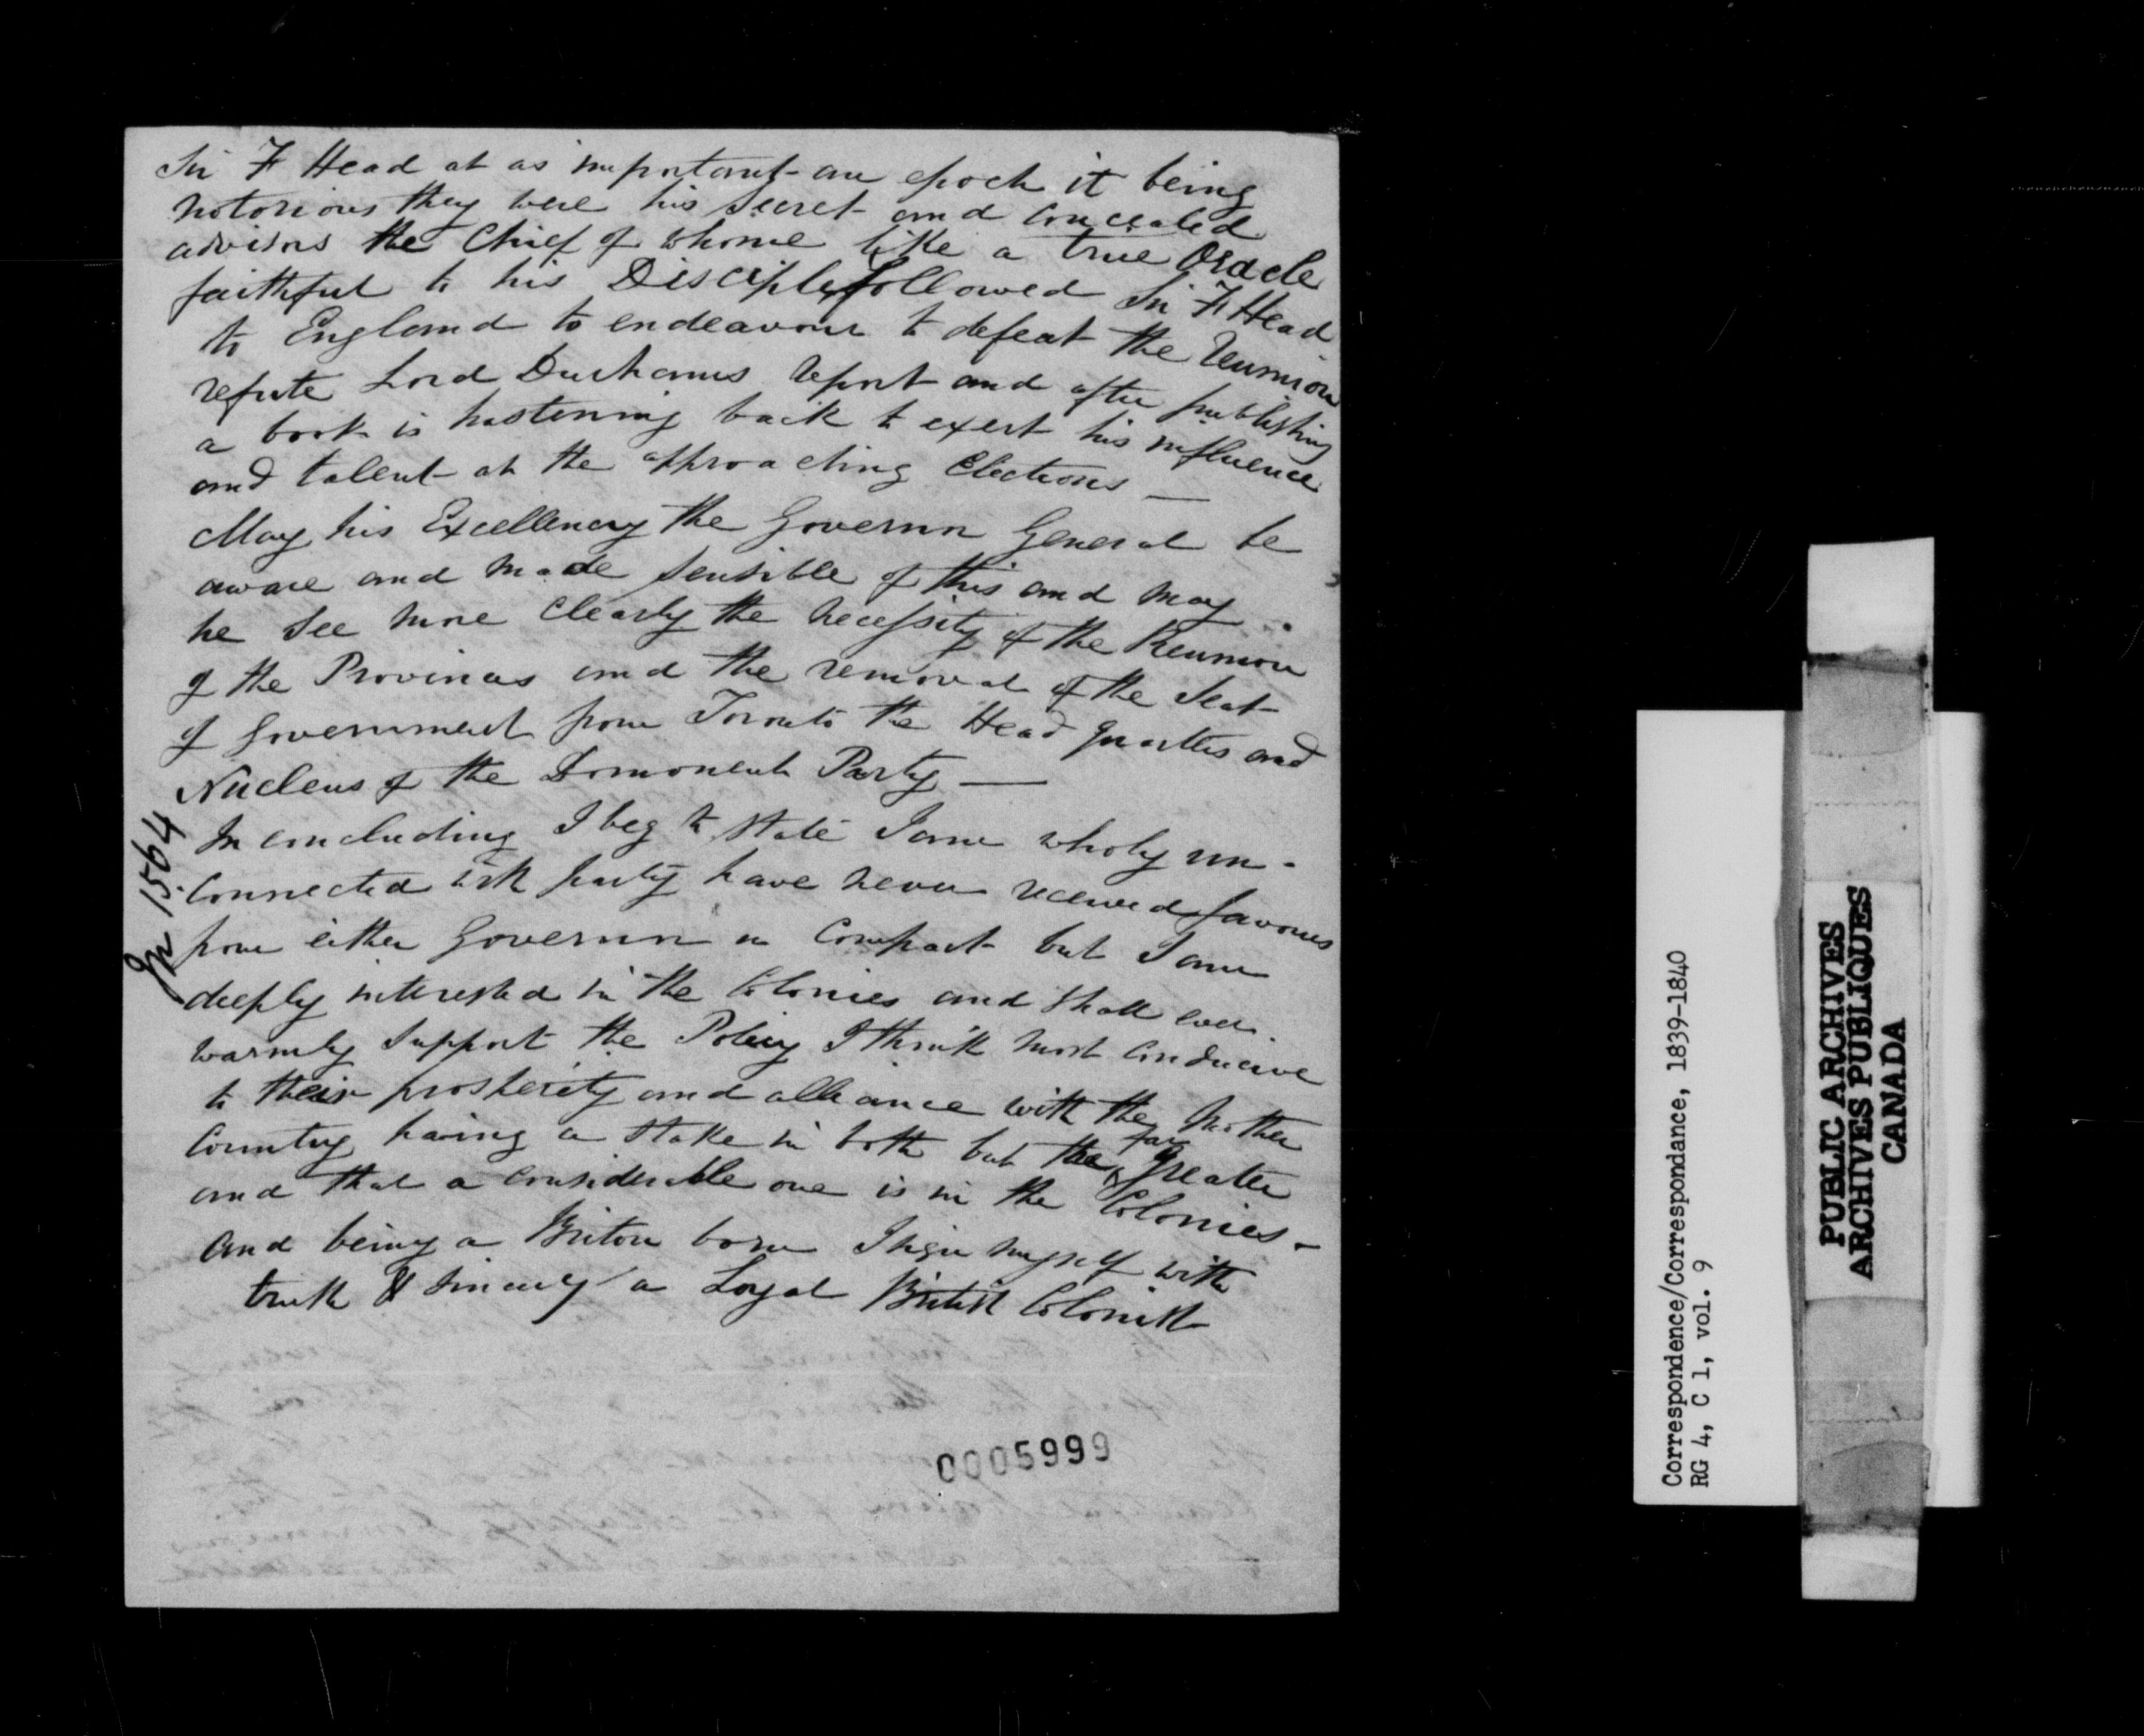 Sir F Head at as important an epoch it being
notorious they were his secret and concealed
advisors the Chief of whome like a true Oracle
faithful to his Disciple followed Sir F Head
to England to endeavour to defeat the Reunion
refute Lord Durhams report and after publishing
a book is hastening back to exert his influence
and talent at the approaching Elections —
May his Excellency the Governor General be
aware and made sensible of this and may
he see more clearly the necessity of the Reunion
of the Provinces and the removal of the Seat
of Government from Toronto the Head Quarters and
Nucleus of the Domonent Party —
In concluding I beg to state I am wholy un-
connected with party have never received favours
from either Governor or Compact but I am
deeply interested in the Colonies and shall ever
warmly support the Policy I think most conducive
to their prosperity and alliance with the Mother
Country having a stake in both but the far greater
and that a considerable one is in the Colonies -
And being a Briton born I sign myself with
truth & sincerity a Loyal British Colonist
1564
0005999
Correspondence/Correspondance, 1839-1840
RG 4, C 1, vol. 9
PUBLIC ARCHIVES
ARCHIVES PUBLIQUES
CANADA